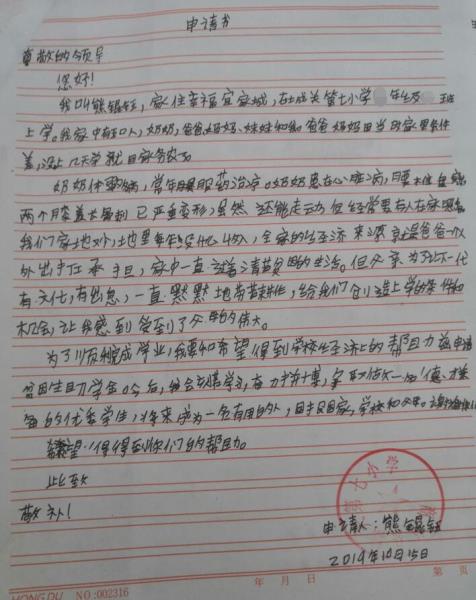 申请书
尊敬的领导
您好!
我叫熊锟钰,家住幸福宜家城,在城关第七小学 年级 班
上学。我家中有五口人,奶奶,爸爸妈妈、妹妹和我。爸爸妈妈由当时家里条件
差,没上几天学就回家务农了。
奶奶体弱多病,常年服药治疗。奶奶患有心脏病,腰
两个膝盖 已严重变形,虽然还能走动,但经常要有人在家照看
我们家地少,土地里每年没什么收入,全家的经济来源就是爸爸一人
外出打工,家中一直过着清贫 的生活。但父亲为让下一代
有文化,有出息,一直默默地劳苦 ,给我们创造上学的条件和
机会,让我感到 了父母的伟大。
为了顺利完成学业,我要和希望得到学校经济上的帮助,在此申请
贫困生助学金。今后,我会 学习,奋力拼搏,争取做一名德才
的优秀学生,将来成为一名有用的人,回报国家,学校和父母。
希望得到你们的帮助。
此致
敬礼!
第七小学
申请人:熊锟钰
2019年10月15日
年 月 日 第 页
HONGDU NO:002316